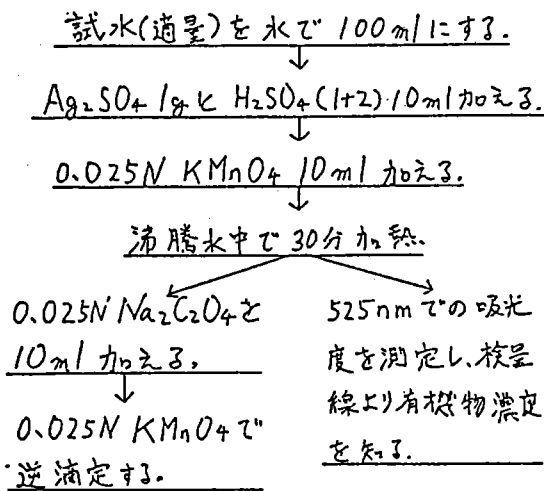 試水(適量)を水で100mlにする.
Ag₂SO₄ 1gとH₂SO₄(1+2)10ml加える.
0.025N KMnO₄ 10ml 加える.
沸騰水中で30分加熱.
0.025N Na₂C₂O₄を
10ml 加える。
0.025N KMnO₄で
逆滴定する。
525nmでの吸光
度を測定し、検量
線より有機物濃度
を知る.